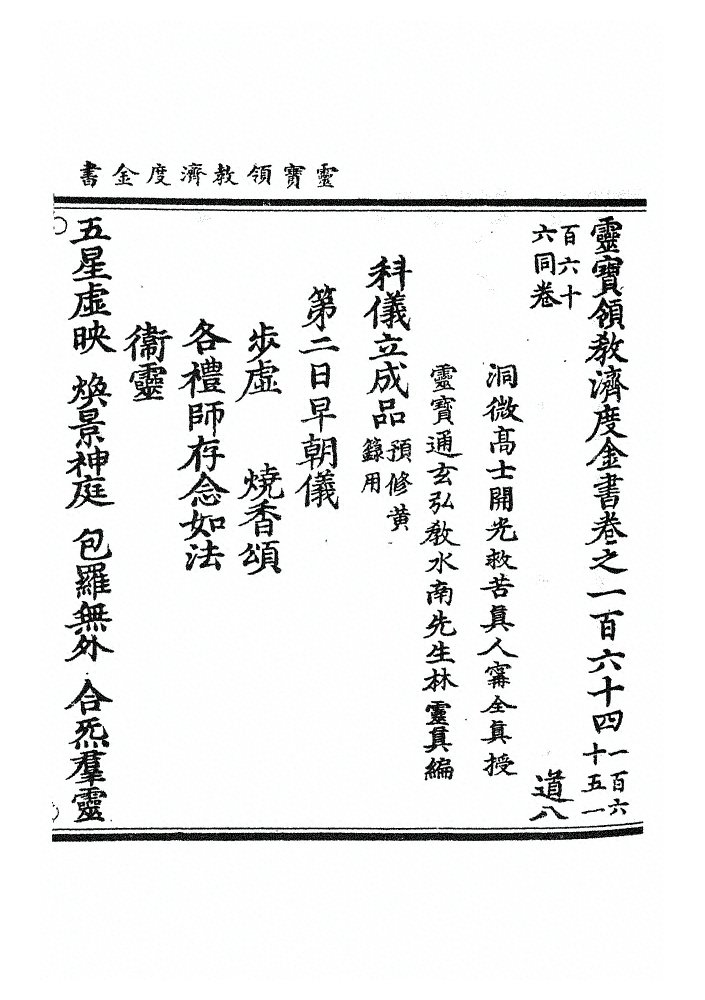 靈寶領教濟度金書
靈寶領敎濟度金書卷之一百六十四一百六十五一
百六十六同卷 道八
洞微高士開光救苦眞人甯全眞授
靈寶通玄弘敎水南先生林靈眞編
科儀立成品預修黄籙用
第二日早朝儀
步虛 燒香頌
各禮師存念如法
衞靈
五星虛映 煥景神庭 包羅無外 合炁羣靈